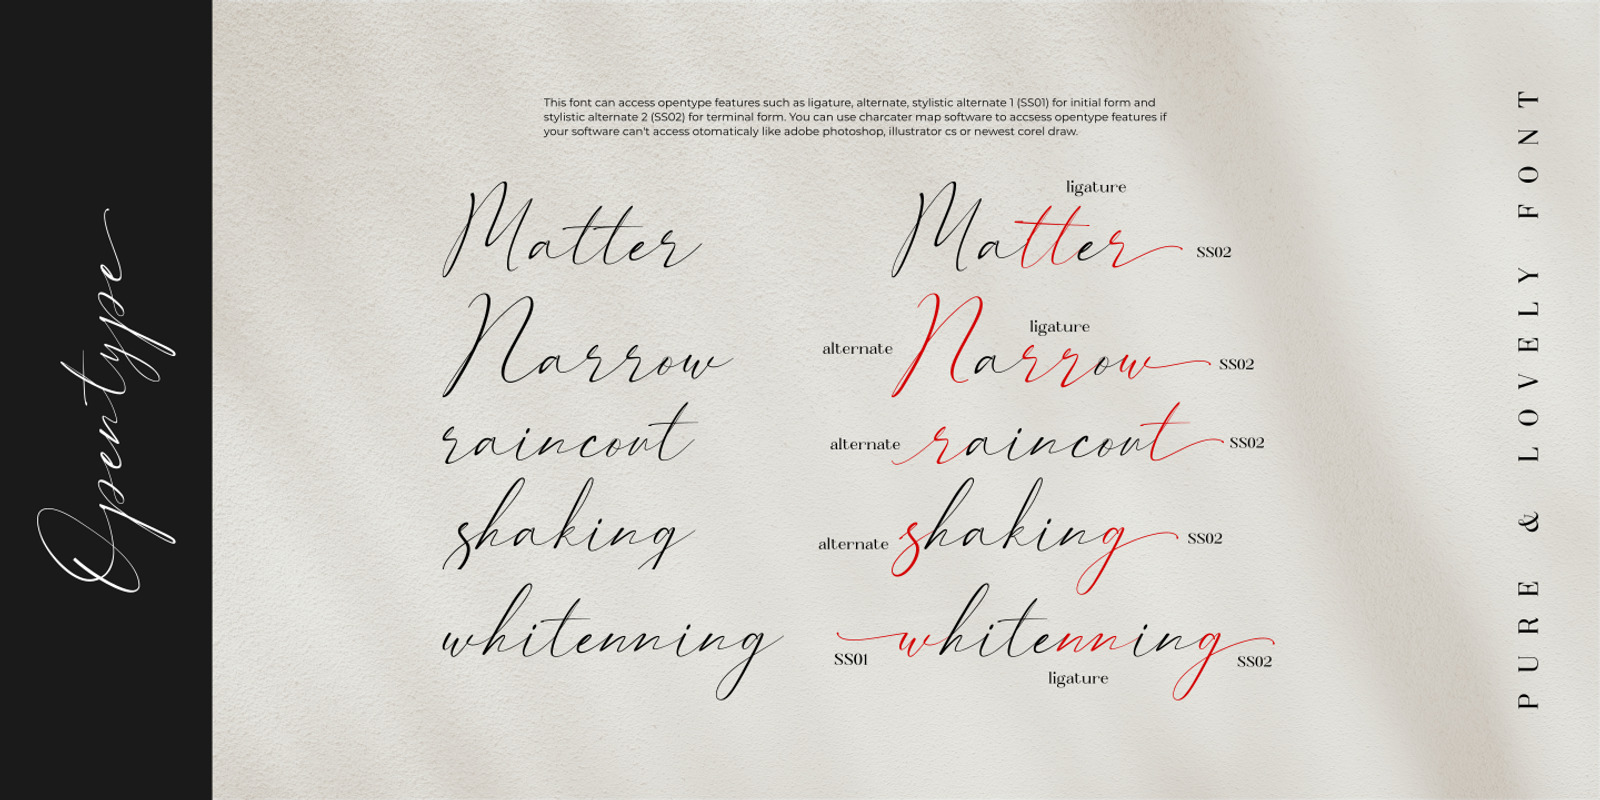 Opentype
This font can access opentype features such as ligature, alternate, stylistic alternate 1 (SS01) for initial form and
stylistic alternate 2 (SS02) for terminal form. You can use charcater map software to accsess opentype features if
your software can't access otomaticaly like adobe photoshop, illustrator cs or newest corel draw.
Matter
Narrow
raincout
shaking
whitenning
ligature
Matter SS02
ligature
alternate Narrow SS02
alternate raincout SS02
alternate shaking SS02
SS01 whitenning SS02
ligature
PURE & LOVELY FONT